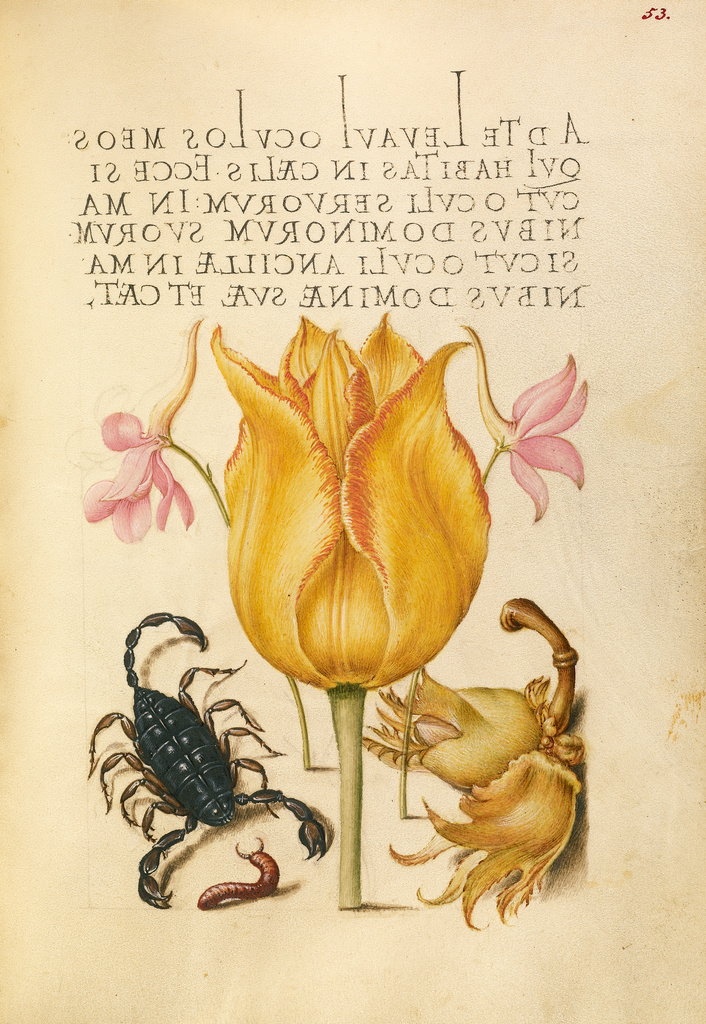 53.
AD TE LEVAVI OCVLOS MEOS
QVI HABITAS IN CÆLIS · ECCE SI
CVT OCULI SERVORVM: IN MA
NIBVS DOMINORVM SVORVM·
SICVT OCVLI ANCILLÆ IN MA
NIBVS DOMINÆ SVÆ ET CÆT,